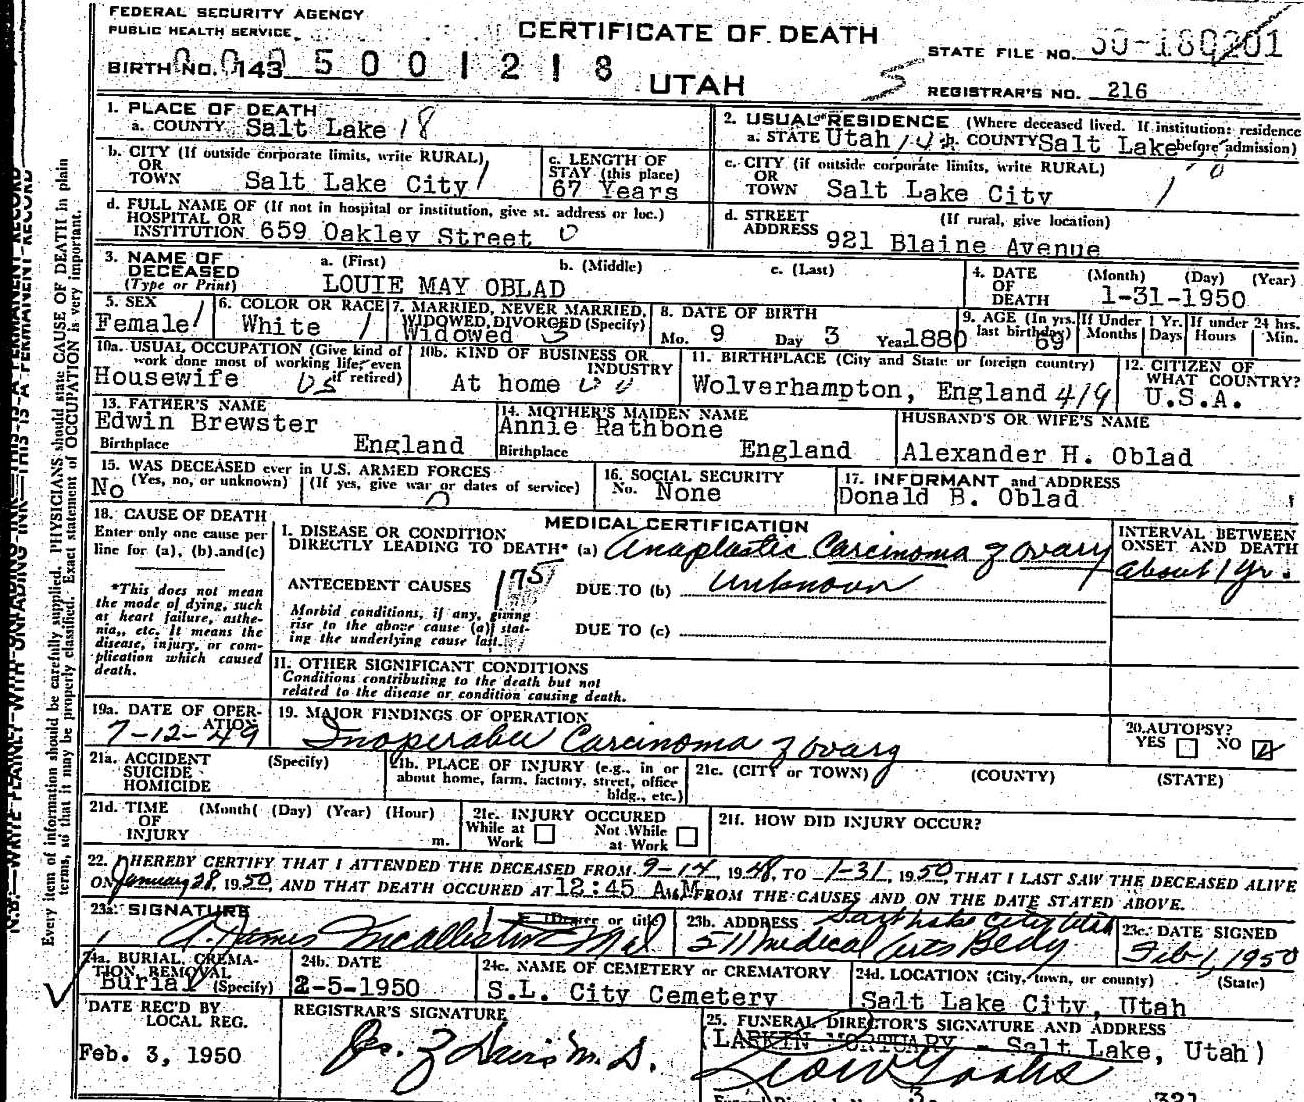 FEDERAL SECURITY AGENCY
PUBLIC HEALTH SERVICE
CERTIFICATE OF DEATH
UTAH
STATE FILE NO.
BIRTH NO. 143 5 0 0 1 2 1 8
REGISTRAR'S NO. 216
1. PLACE OF DEATH
a. COUNTY Salt Lake 18
2. USUAL RESIDENCE (Where deceased lived. If institution: residence before admission)
a. STATE Utah b. COUNTY Salt Lake
b. CITY (If outside corporate limits, write RURAL)
OR
TOWN Salt Lake City
c. LENGTH OF
STAY (this place)
67 Years
c. CITY (if outside corporate limits, write RURAL)
OR
TOWN Salt Lake City
d. FULL NAME OF (If not in hospital or institution, give st. address or loc.)
HOSPITAL OR
INSTITUTION 659 Oakley Street 0
d. STREET (If rural, give location)
ADDRESS 921 Blaine Avenue
3. NAME OF
DECEASED
(Type or Print)
a. (First) b. (Middle) c. (Last)
LOUIE MAY OBLAD
4. DATE (Month) (Day) (Year)
OF
DEATH 1-31-1950
5. SEX
Female 1
6. COLOR OR RACE
White 1
7. MARRIED, NEVER MARRIED,
WIDOWED, DIVORCED (Specify)
Widowed 3
8. DATE OF BIRTH
Mo. 9 Day 3 Year 1880
9. AGE (In yrs. last birthday) 69
If Under 1 Yr.
Months Days
If under 24 hrs.
Hours Min.
10a. USUAL OCCUPATION (Give kind of
work done most of working life, even
if retired)
Housewife
10b. KIND OF BUSINESS OR
INDUSTRY
At home
11. BIRTHPLACE (City and State or foreign country)
Wolverhampton, England 419
12. CITIZEN OF
WHAT COUNTRY?
U.S.A.
13. FATHER'S NAME
Edwin Brewster
Birthplace England
14. MOTHER'S MAIDEN NAME
Annie Rathbone
Birthplace England
HUSBAND'S OR WIFE'S NAME
Alexander H. Oblad
15. WAS DECEASED ever in U.S. ARMED FORCES
(Yes, no, or unknown) (If yes, give war or dates of service)
No 0
16. SOCIAL SECURITY
No. None
17. INFORMANT and ADDRESS
Donald B. Oblad
18. CAUSE OF DEATH
Enter only one cause per
line for (a), (b) and (c)
*This does not mean
the mode of dying, such
as heart failure, asthe-
nia, etc. It means the
disease, injury, or com-
plication which caused
death.
MEDICAL CERTIFICATION
I. DISEASE OR CONDITION
DIRECTLY LEADING TO DEATH* (a) Anaplastic Carcinoma of ovary
INTERVAL BETWEEN
ONSET AND DEATH
about 1 yr.
ANTECEDENT CAUSES 175
DUE TO (b) unknown
Morbid conditions, if any, giving
rise to the above cause (a) stat-
ing the underlying cause last.
DUE TO (c)
II. OTHER SIGNIFICANT CONDITIONS
Conditions contributing to the death but not
related to the disease or condition causing death.
19a. DATE OF OPER-
ATION
7-12-49
19. MAJOR FINDINGS OF OPERATION
Inoperable Carcinoma of ovary
20. AUTOPSY?
YES NO
21a. ACCIDENT (Specify)
SUICIDE
HOMICIDE
21b. PLACE OF INJURY (e.g., in or
about home, farm, factory, street, office
bldg., etc.)
21c. (CITY or TOWN) (COUNTY) (STATE)
21d. TIME (Month) (Day) (Year) (Hour)
OF
INJURY m.
21e. INJURY OCCURED
While at
Work
Not While
at Work
21f. HOW DID INJURY OCCUR?
22. I HEREBY CERTIFY THAT I ATTENDED THE DECEASED FROM 9-14 1948, TO 1-31, 1950, THAT I LAST SAW THE DECEASED ALIVE
ON January 28, 1950, AND THAT DEATH OCCURED AT 12:45 A.M. FROM THE CAUSES AND ON THE DATE STATED ABOVE.
23a. SIGNATURE (Degree or title)
McAllister MD
23b. ADDRESS Salt Lake City Utah
211 Medical Arts Bldg
23c. DATE SIGNED
Feb 1, 1950
24a. BURIAL, CREMA-
TION, REMOVAL
Burial (Specify)
24b. DATE
2-5-1950
24c. NAME OF CEMETERY or CREMATORY
S.L. City Cemetery
24d. LOCATION (City, town, or county) (State)
Salt Lake City, Utah
DATE REC'D BY
LOCAL REG.
Feb. 3, 1950
REGISTRAR'S SIGNATURE
M.D.
25. FUNERAL DIRECTOR'S SIGNATURE AND ADDRESS
(LARKIN MORTUARY - Salt Lake, Utah)
321
N.B.—WRITE PLAINLY WITH UNFADING INK—THIS IS A PERMANENT RECORD
Every item of information should be carefully supplied. PHYSICIANS should state CAUSE OF DEATH in plain
terms, so that it may be properly classified. Exact statement of OCCUPATION is very important.